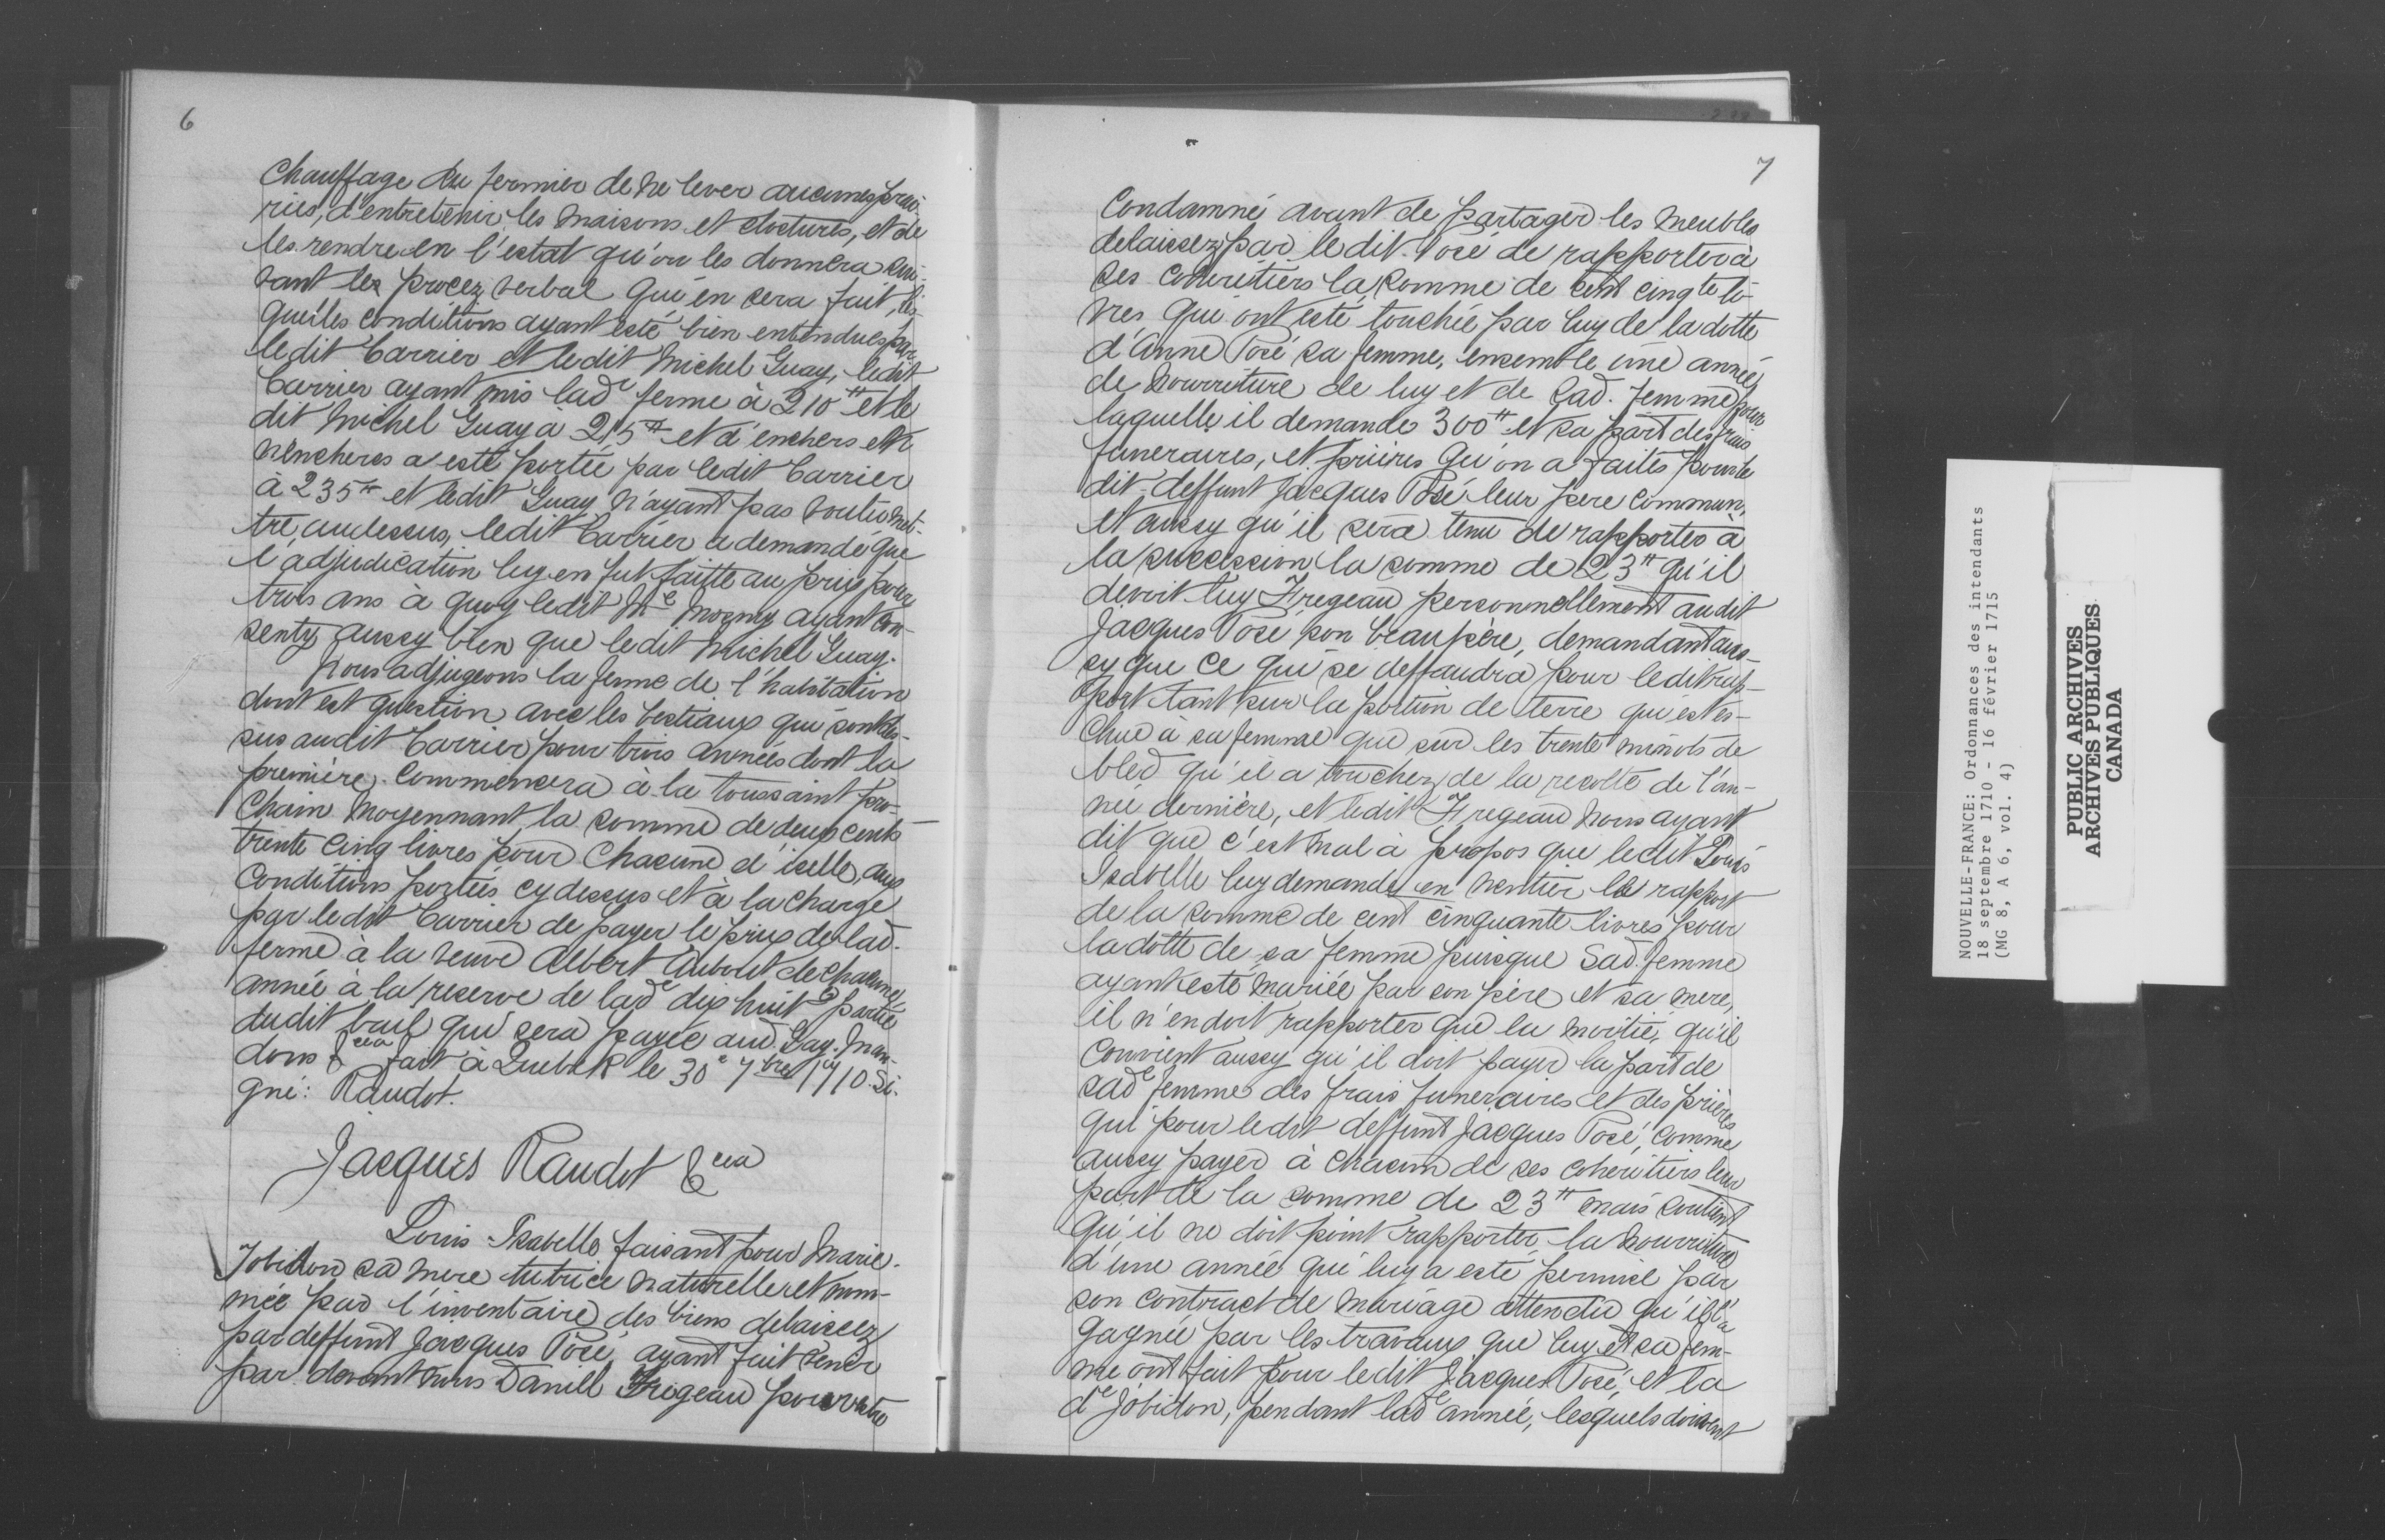 6
Chauffage du fermier de ne lever aucunes prai-
ries, d'entretenir les maisons et clostures, et de
les rendre en l'estat qu'on les donnera sui-
vant les procez verbal qui en sera fait, les-
quelles conditions ayant esté bien entendues par
ledit Carrier et ledit Michel Guay, ledit
Carrier ayant mis lade ferme à 210tt et le
dit Michel Guay à 215tt et d'enchers en
n'encheres a esté portée par ledit Carrier
à 235tt et ledit Guay n'ayant pas voulu met-
tre, audessus, ledit Carrier a demandé que
l'adjudication luy en fut faitte au prix pour
trois ans a quoy ledit Me ayant con-
senty aussy bien que ledit Michel Guay.
Nous adjugeons la ferme de l'habitation
dont est question avec les bestiaux qui sont des-
sus audit Carrier pour trois années dont la
première commencera à la toussaint pro-
chain moyennant la somme de deux cents
trente cinq livres pour chacune d'icelle, aux
Conditions portées cy dessus et à la charge
par ledit Carrier de payer le prix de lad.
ferme à la veuve Albert au bout de chacune
année à la reserve de lade dix huite partie
dudit bail qui sera payée aud. Guy. Man-
dons &cea fait à Quebek le 30e 7bre 1710. Si-
gné: Raudot.
Jacques Raudot &cea
Louis Isabelle faisant pour Marie
Jobidon sa mere tutrice naturelle et nom-
mée par l'inventaire des biens delaissez
par deffunt Jacques Posé, ayant fait venir
par devant nous Daniell Fregeau pour estre
7
Condamné avant de partager les meubles
delaissez par ledit Posé de rapporter à
ses coheritiers la somme de cent cinqte li-
vres qui ont esté touchée par luy de la dotte
d'Anne Posé sa femme, ensemble une année
de nourriture de luy et de lad. femme pour
laquelle il demande 300tt et sa part des frais
funeraires, et prieres qu'on a faites pour le
dit deffunt Jacques Posé leur pere commun,
et aussy qu'il sera tenu de rapporter à
la succession la somme de 23tt qu'il
devoit luy Fregeau personnellement audit
Jacques Posé son beaupère, demandant aus-
sy que ce qui se deffaudra pour ledit rap-
port tant sur la portion de terre qui est es-
chue à sa femme que sur les trente minots de
bled qu'il a touchez de la recolte de l'an-
née dernière, et ledit Fregeau nous ayant
dit que c'est mal à propos que ledit Louis
Isabelle luy demande en n'entier le rapport
de la somme de cent cinquante livres pour
la dotte de sa femme puisque Sad. femme
ayant esté mariée par son père et sa mere,
il n'en doit rapporter que la moitié, qu'il
Convient aussy qu'il doit payer la part de
sade femme des frais funeraires et des prières
qui pour ledit deffunt Jacques Posé, comme
aussy payer à chacun de ses coheritiers leur
part de la somme de 23tt mais soutient
qu'il ne doit point rapporter la nourriture
d'une année qui luy a esté permise par
son contract de mariage attendu qu'il l'a
gagnée par les travaux que luy et sa fem-
me ont fait pour ledit Jacques Posé, et la
de Jobidon, pendant lade année, lesquels doivent
NOUVELLE-FRANCE: Ordonnances des intendants
18 septembre 1710 - 16 février 1715
(MG 8, A 6, vol. 4)
PUBLIC ARCHIVES
ARCHIVES PUBLIQUES
CANADA